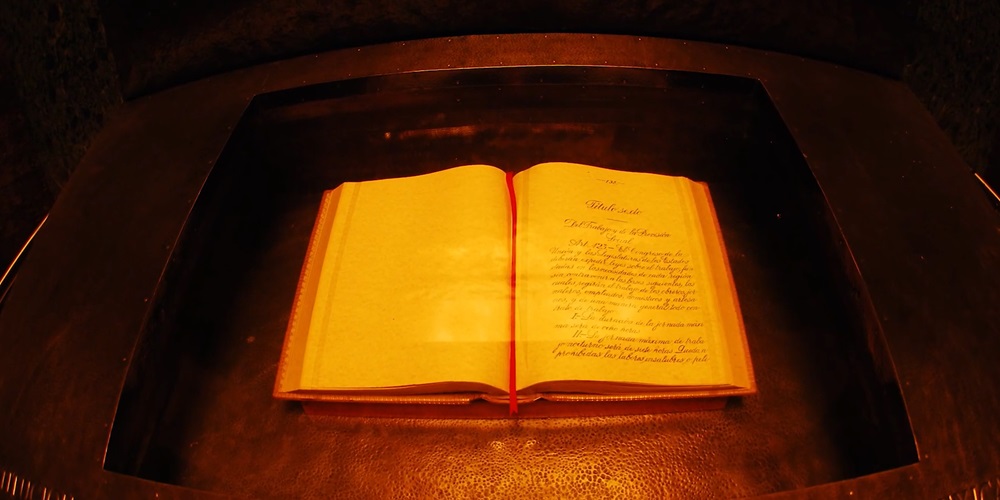 Título sexto
Del Trabajo y de la Previsión
Social
Art. 123.- El Congreso de la
Unión y las Legislaturas de los Estados
deberán expedir leyes sobre el trabajo, fun-
dadas en las necesidades de cada región
sin contravenir a las bases siguientes, las
cuales regirán el trabajo de los obreros, jor-
naleros, empleados, domésticos y artesa-
nos, y de una manera general todo con-
trato de trabajo:
I.- La duración de la jornada máxi-
ma será de ocho horas.
II.- La jornada máxima de traba-
jo nocturno será de siete horas. Quedan
prohibidas las labores insalubres o peli-